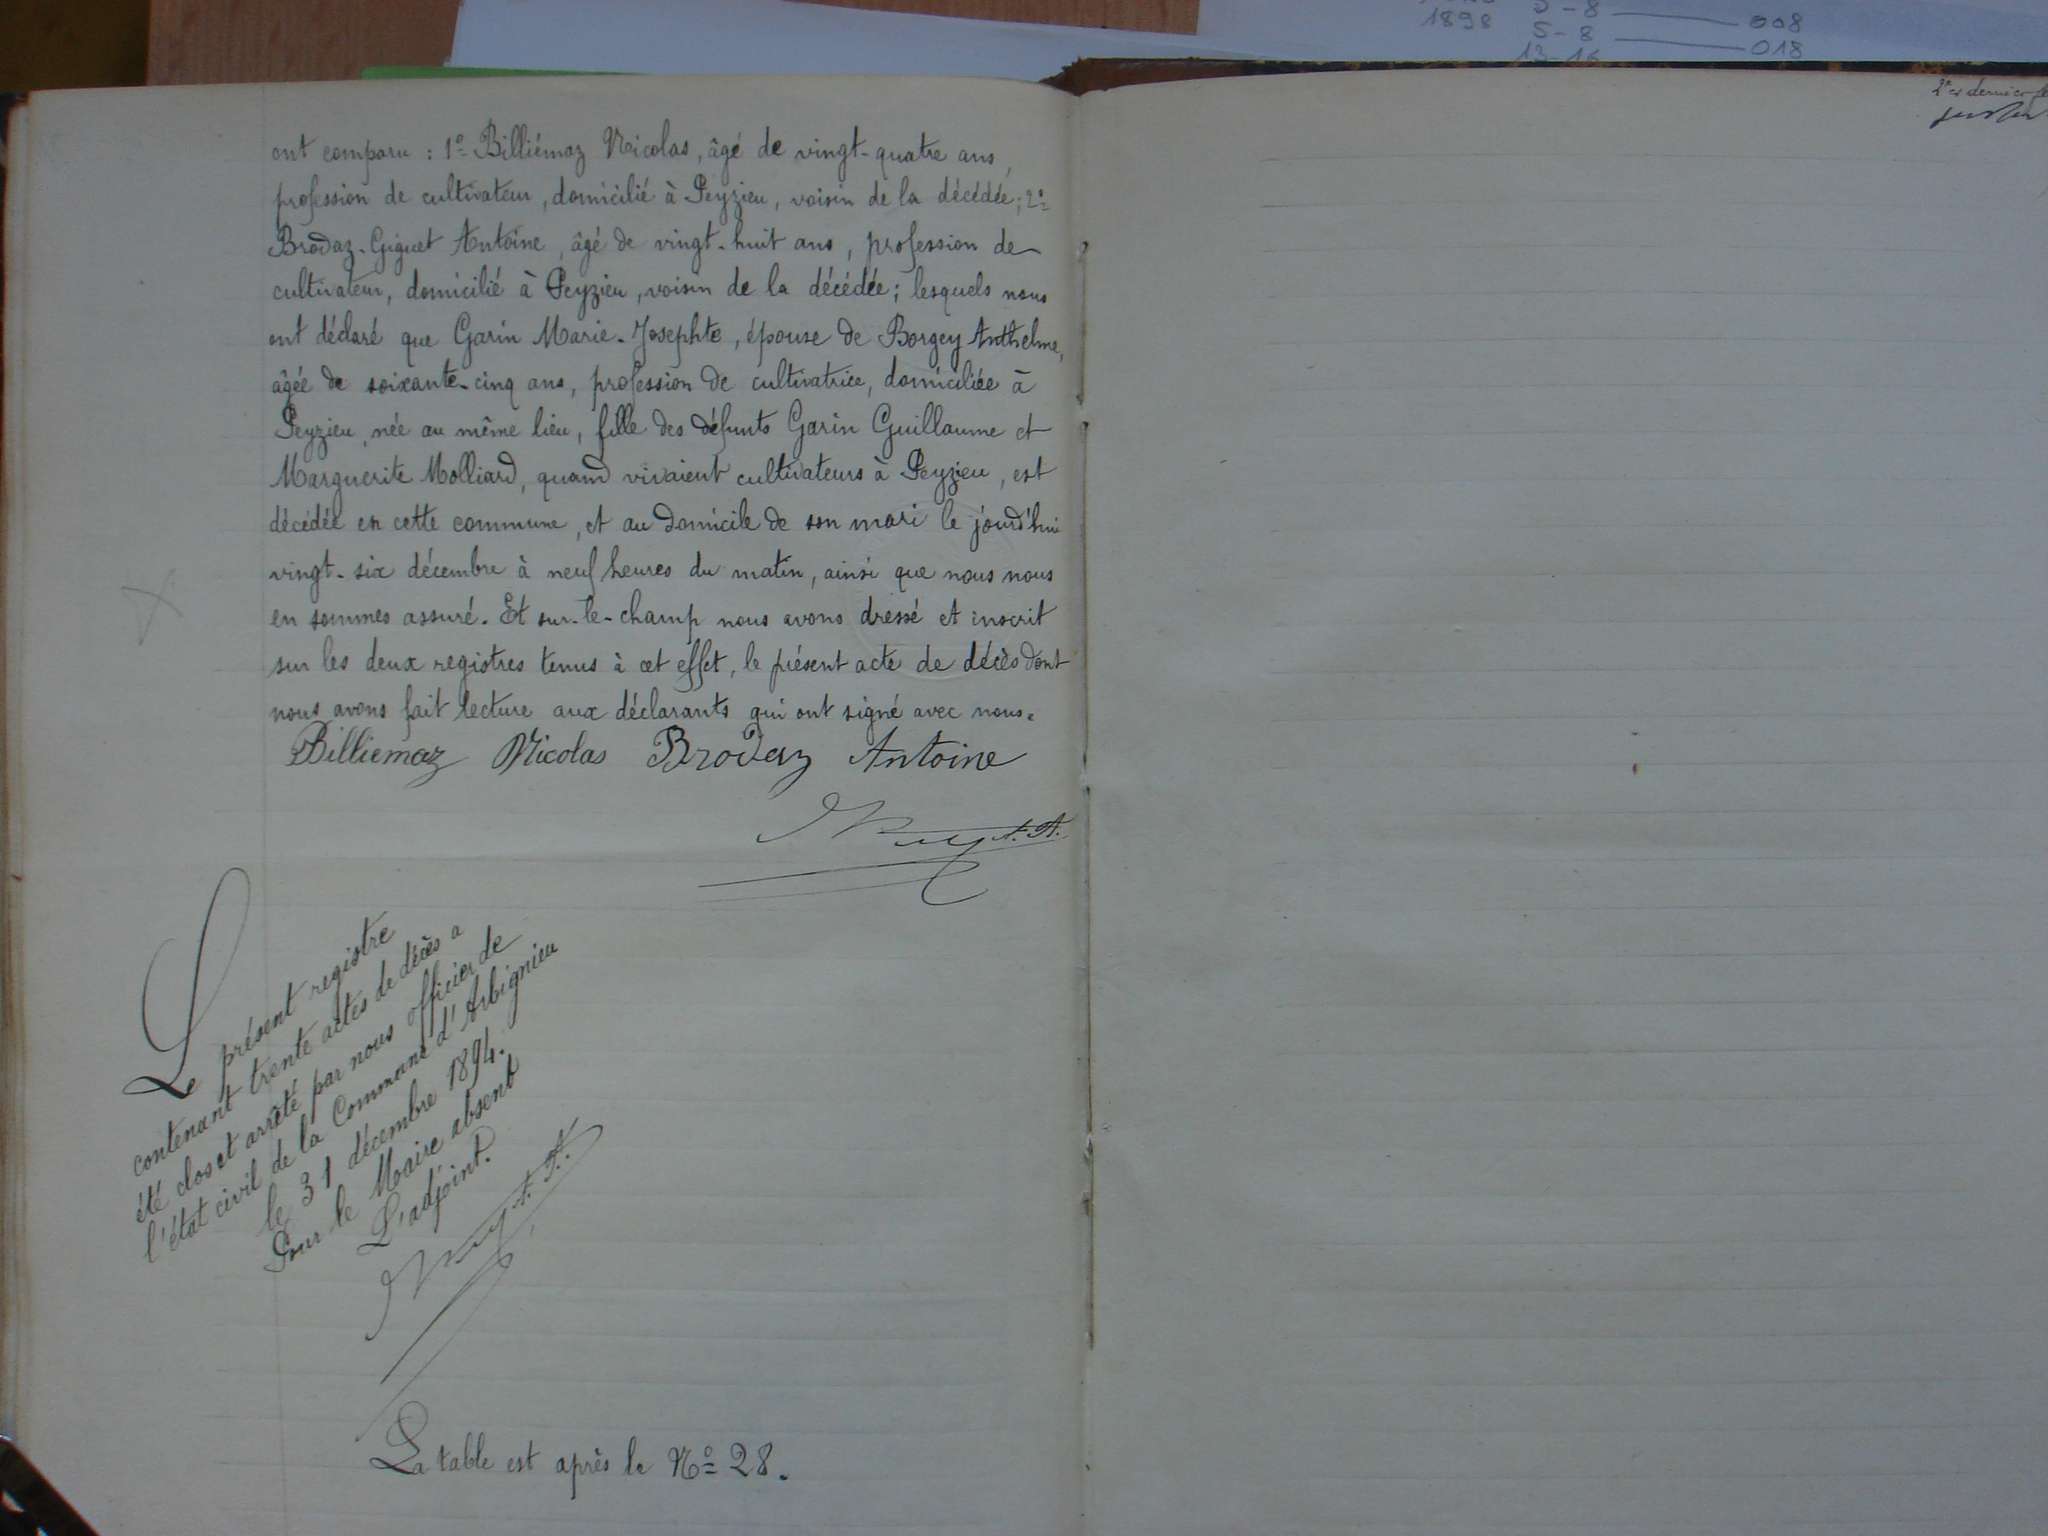 1898 5-8 008
5-8 018
13-16
2e et dernier
ont comparu : 1º Billiémaz Nicolas, âgé de vingt-quatre ans,
profession de cultivateur, domicilié à Peyzieu, voisin de la décédée; 2º
Brodaz-Giguet Antoine, âgé de vingt-huit ans, profession de
cultivateur, domicilié à Peyzieu, voisin de la décédée; lesquels nous
ont déclaré que Garin Marie-Josephte, épouse de Borgey Anthelme,
âgée de soixante-cinq ans, profession de cultivatrice, domiciliée à
Peyzieu, née au même lieu, fille des défunts Garin Guillaume et
Marguerite Molliard, quand vivaient cultivateurs à Peyzieu, est
décédée en cette commune, et au domicile de son mari le jourd'hui
vingt-six décembre à neuf heures du matin, ainsi que nous nous
en sommes assuré. Et sur-le-champ nous avons dressé et inscrit
sur les deux registres tenus à cet effet, le présent acte de décès dont
nous avons fait lecture aux déclarants qui ont signé avec nous.
Billiemaz Nicolas Brodaz Antoine
Le présent registre
contenant trente actes de décès a
été clos et arrêté par nous officier de
l'état civil de la Commune d'Arbignieu
le 31 décembre 1894.
Pour le Maire absent
L'adjoint.
La table est après le Nº 28.